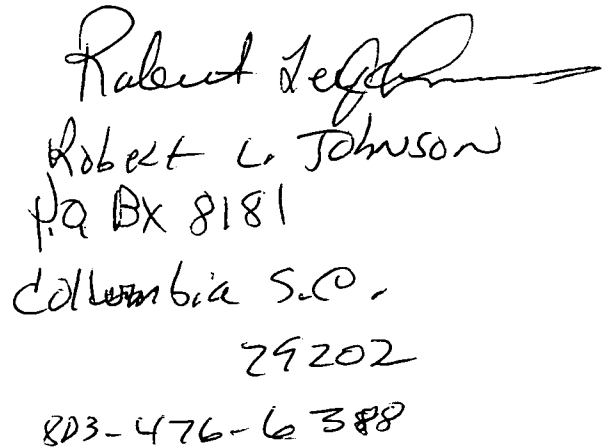 Robert Lee Johnson
Robert L. Johnson
P.O BX 8181
Collumbia S.C.
29202
803-476-6388